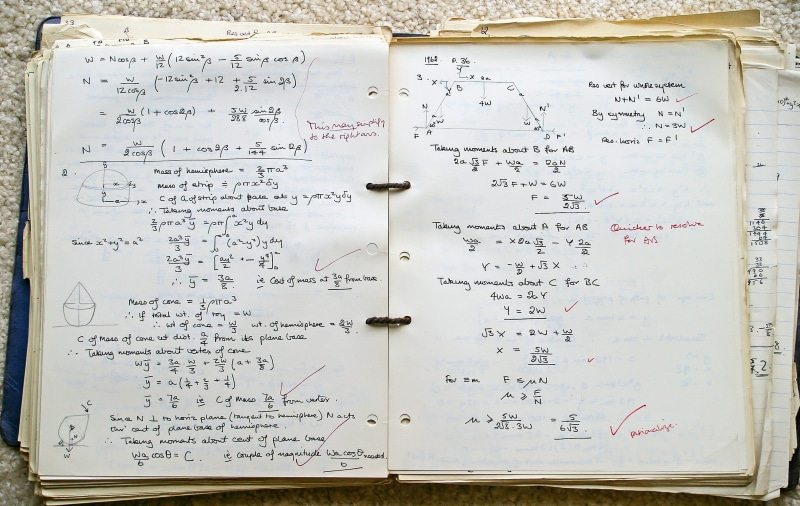 33
W = Ncosβ + W/12 (12 sin²β - 5/12 sinβ cosβ)
N = W/12cosβ (-12sin²β + 12 + 5/2.12 sin2β)
= W/2cosβ (1 + cos2β) + 5W/288 sin2β/cosβ
This may simplify
to the right ans.
N = W/2cosβ (1 + cos2β + 5/144 sin2β)
2.
Mass of hemisphere = 2/3 πρa³
Mass of strip = ρπx²δy
C of M of strip about base at y = ρπx²yδy
∴ Taking moments about base
2/3 ρπa³ȳ = ρπ∫₀ᵃ x²y dy
Since x²+y²=a² 2a³ȳ/3 = ∫₀ᵃ (a²-y²)y dy
2a³ȳ/3 = [ay²/2 - y⁴/4]₀ᵃ
∴ ȳ = 3a/8 ie Cent of mass at 3a/8 from base.
Mass of cone = 1/3 ρπa³
∴ if total wt. of toy = W
∴ wt of cone = W/3 wt. of hemisphere = 2W/3
C of Mass of cone at dist. a/4 from its plane base
∴ Taking moments about vertex of cone
Wȳ = 3a/4 W/3 + 2W/3 (a + 3a/8)
ȳ = a(1/4 + 2/3 + 1/4)
ȳ = 7a/6 ie C of Mass 7a/6 from vertex.
C
N
W
Since N ⊥ to horiz plane (tangent to hemisphere) N acts
thro' cent of plane base of hemisphere.
∴ Taking moments about cent of plane base
Wa/6 cosθ = C ie couple of magnitude Wa cosθ/6 needed.
12.
1962 P.36
3.
Y
X X 2a
B C
4W
N N'
W W
F A D F'
Res vert for whole system
N+N' = 6W
By symmetry N = N'
∴ N = 3W
Res. horiz F = F'
Taking moments about B for AB
2a√3/2 F + Wa/2 = 2aN/2
2√3F + W = 6W
F = 5W/2√3
Taking moments about A for AB
Quicker to resolve
for AB
Wa/2 = X2a√3/2 - Y 2a/2
Y = -W/2 + √3X
Taking moments about C for BC
4Wa = 2aY
Y = 2W
√3X = 2W + W/2
X = 5W/2√3
for =m F ≤ μN
μ ≥ F/N
μ ≥ 5W/2√3·3W = 5/6√3
rationalise.